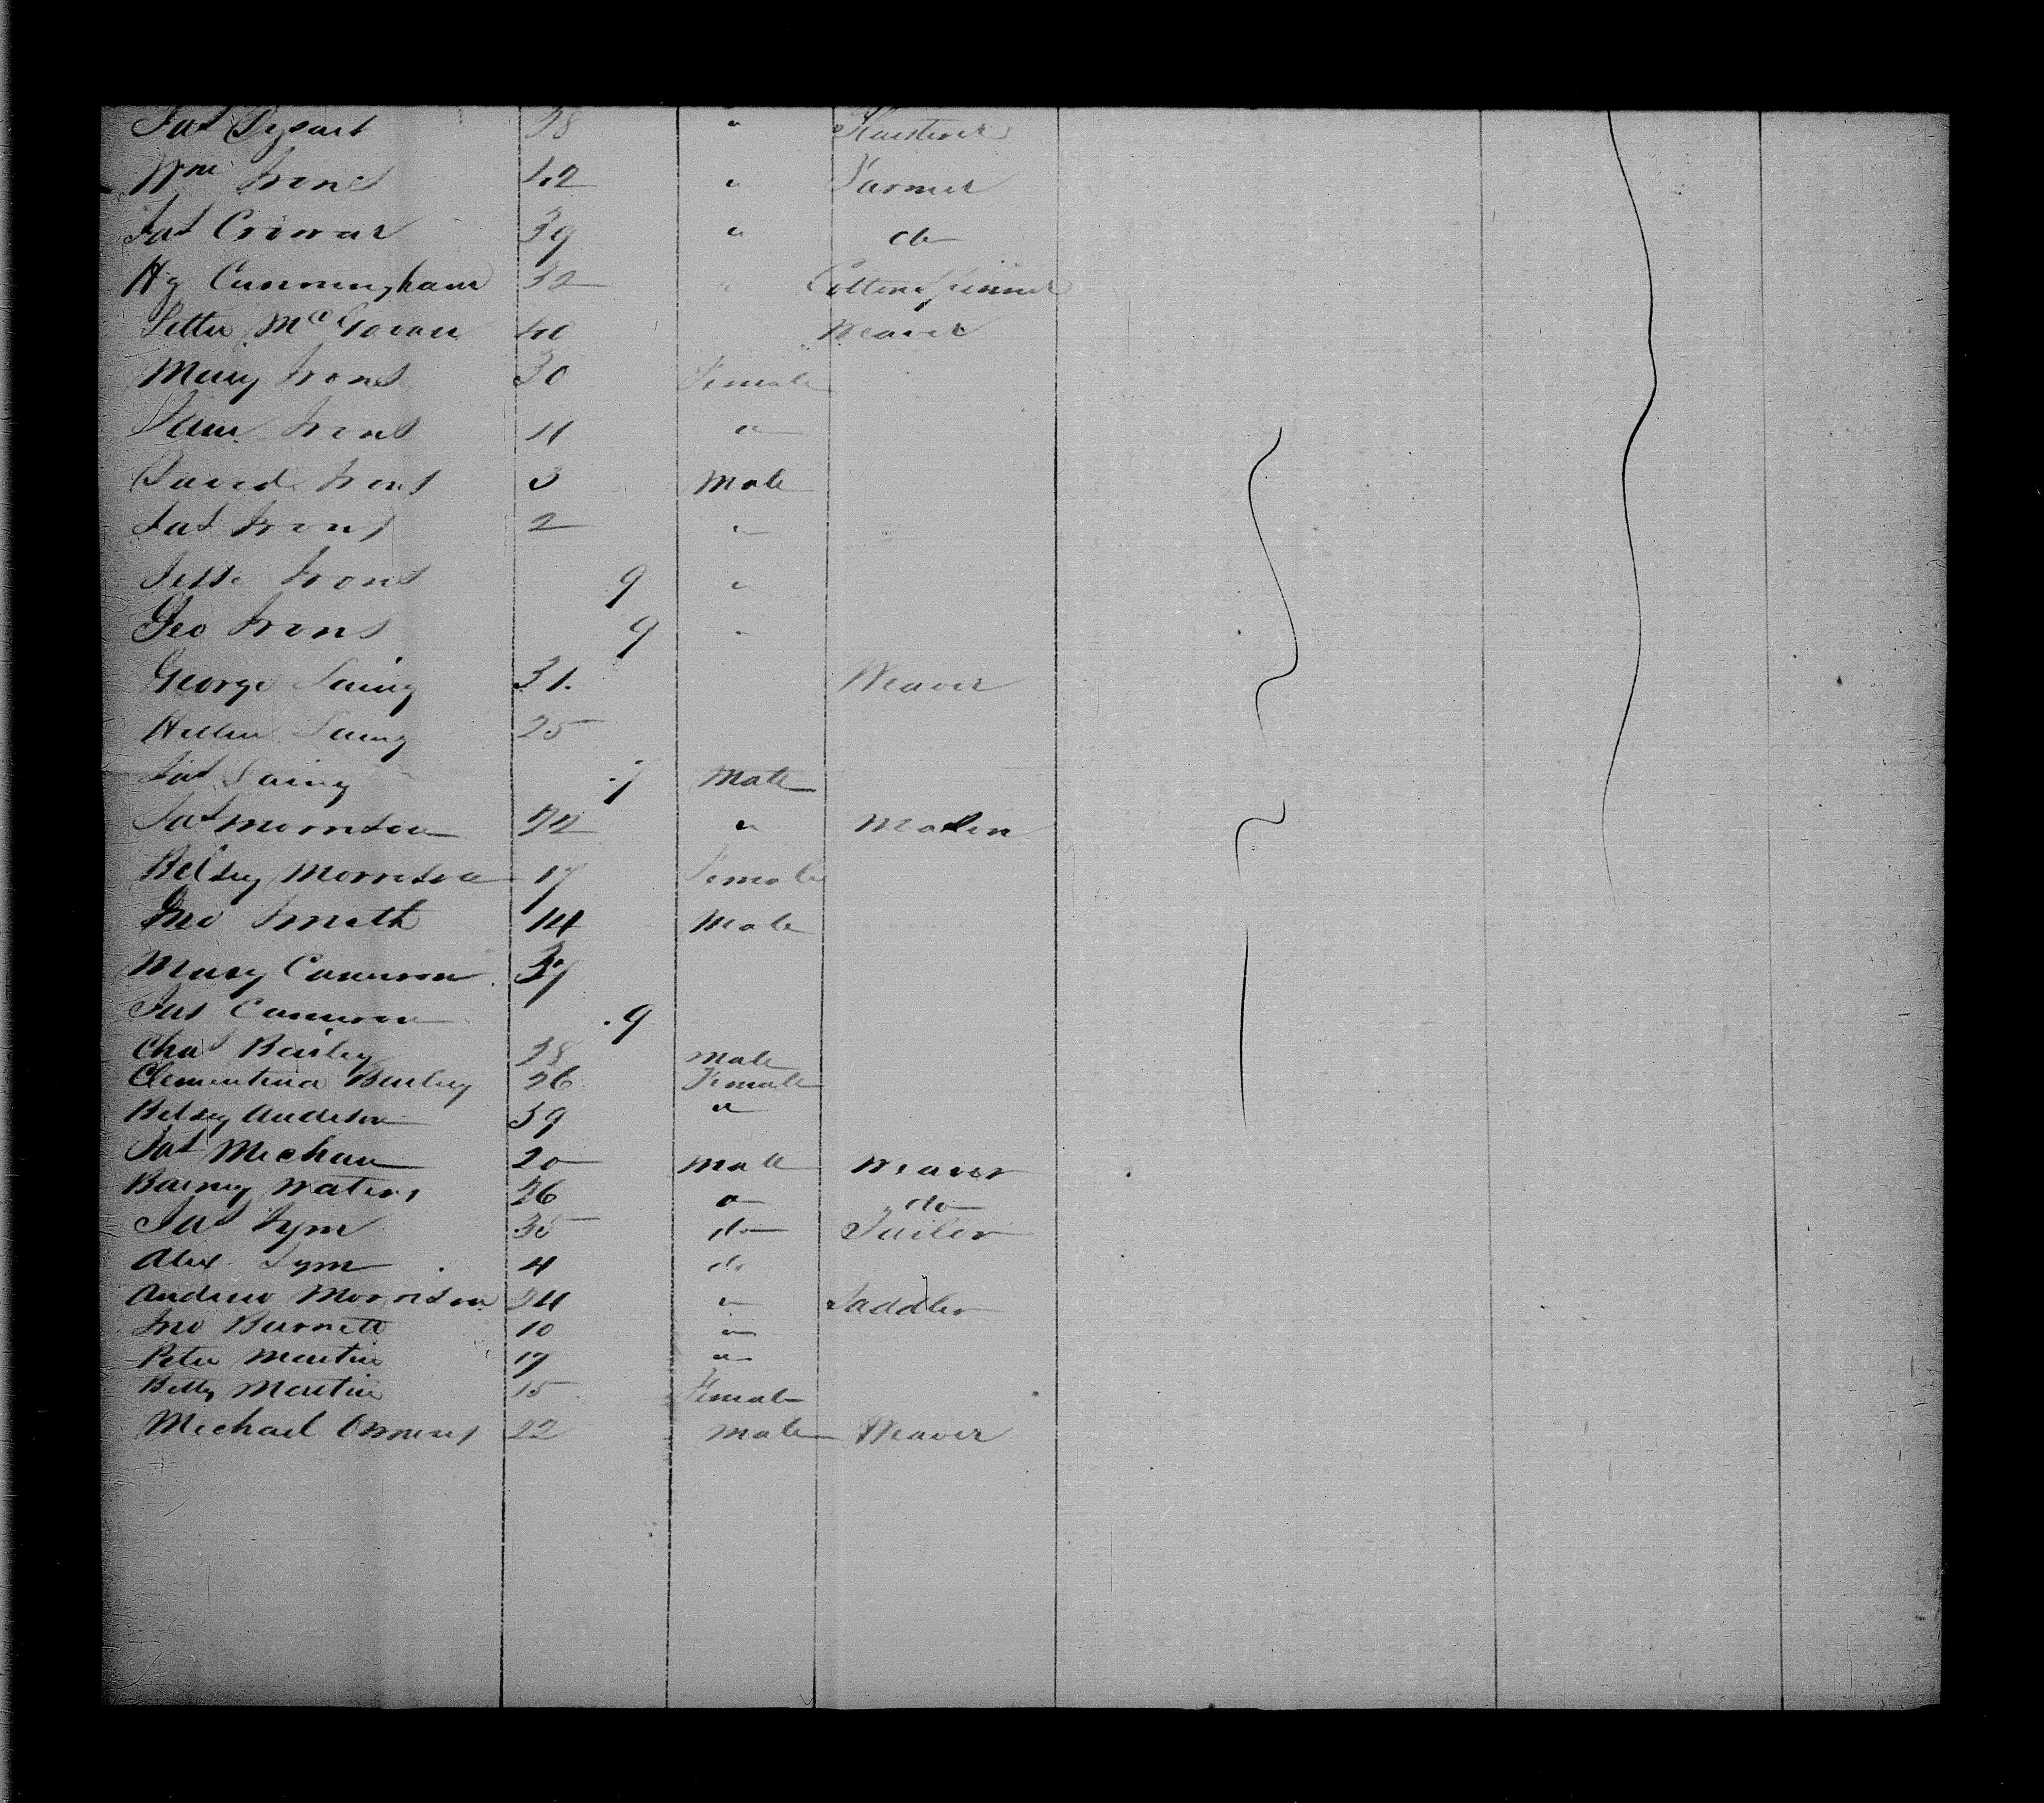 Jas Dysart 38 " Plasterer
Wm Irons 42 " Farmer
Jas Crowar 39 " do
Hy Cunningham 32 " Cotton Spinner
Peter McGavan 40 Weaver
Mary Irons 30 Female
Jane Irons 11 "
David Irons 3 Male
Jas Irons 2 "
Jesse Irons 9 "
Geo Irons 9 "
George Laing 31. Weaver
Hellen Laing 25
Jas Laing Male
Jas Morrison 22 " Mason
Betsey Morrison 17 Female
Jno Smith 14 Male
Mary Cameron 37
Jas Cameron 9
Chas Bailey 28 Male
Clementina Bailey 26 Female
Betsey Anderson 39 "
Jas Mechan 20 Male Weaver
Barney Waters 26 " do
Jas Sym 35 do Tailor
Alex Sym 4 do
Andrew Morrison 24 " Saddler
Jno Burnett 10 "
Peter Martin 17 "
Betty Martin 15 Female
Michael 22 Male Weaver